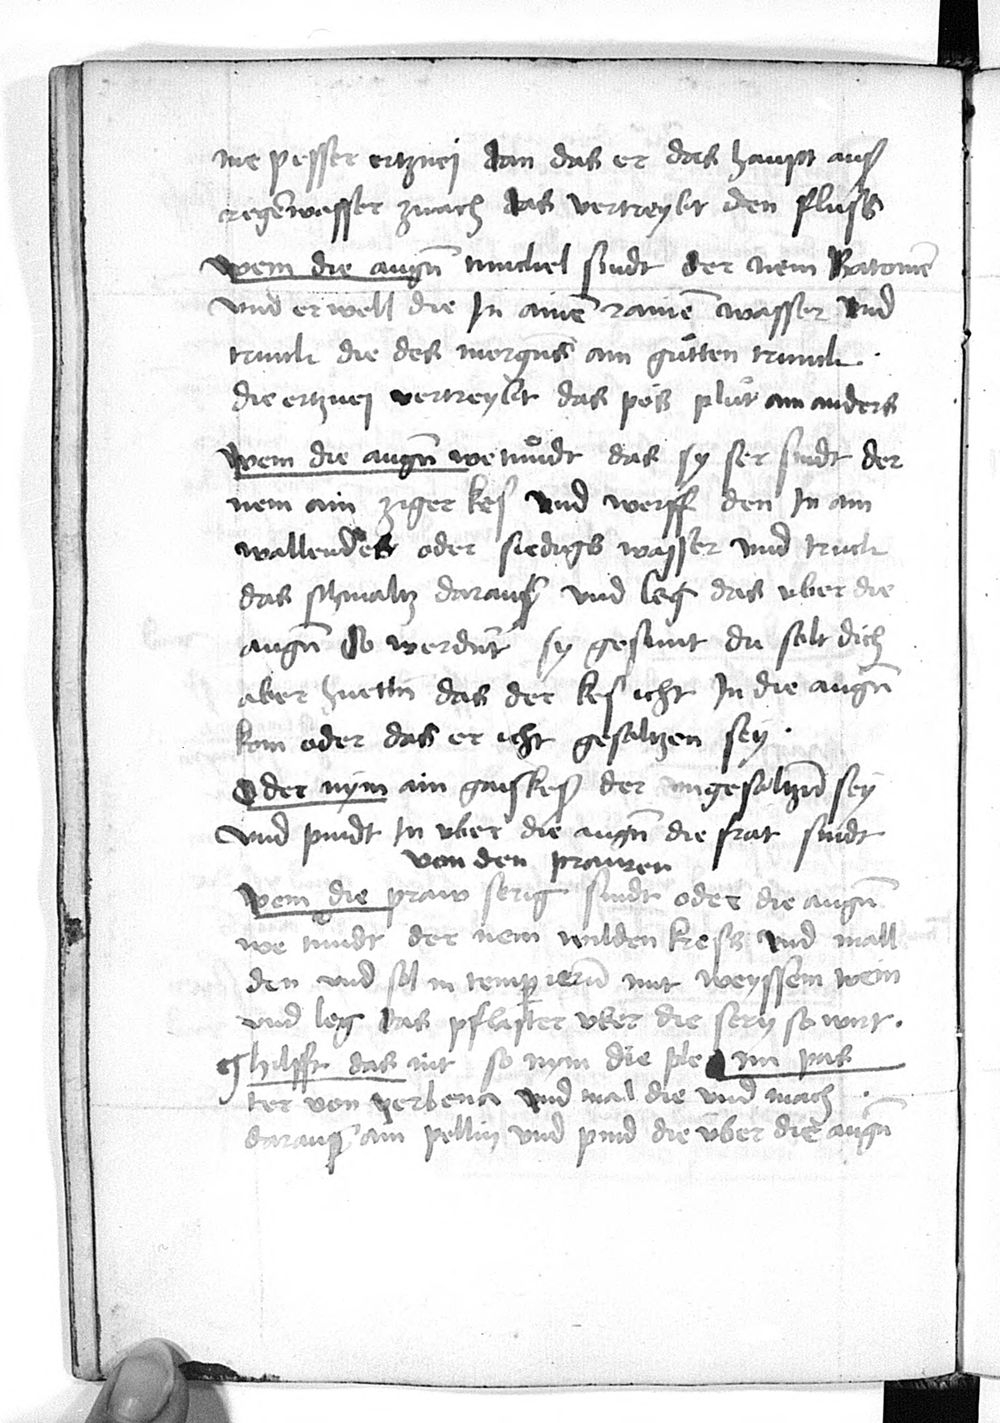 nie pesser ertznei dan das er das haupt auß
regenwasser zwach das vertreybt den fluss
wem die augn̄ tunckel sindt der nem Ratomē
vnd er well die In ainē rainē wasser vnd
trinck die des morgns ain gůtten trunck .
die ertznei vertreybt das pös plůt ain anders
wem die augn̄ we tůndt das sy ser sindt der
nem ain ziger kes vnd werff den In ain
wallendes oder siedigs wasser vnd truck
das schmaltz darauß vnd leg das vber die
augn̄ So werdn̄t sy gesunt du solt dich
aber huettn̄ das der kes icht In die augn̄
kom oder das er icht gesaltzen sey .
Oder nym ain gaiskeß der vngesaltzn̄ sey
vnd pindt In vber die augn̄ die frat sindt
von den prawen
wem die praw serig sindt oder die augn̄
we tůndt der nem wilden kress vnd mall
den vnd sol in temperiern̄ mit weyssem wein
vnd leg das pflaster vber die sery so wirt .
hilfft das nit so nym die ple
ter von verbena vnd mal die vnd mach .
darauß ain pellin vnd pind die vber die augn̄